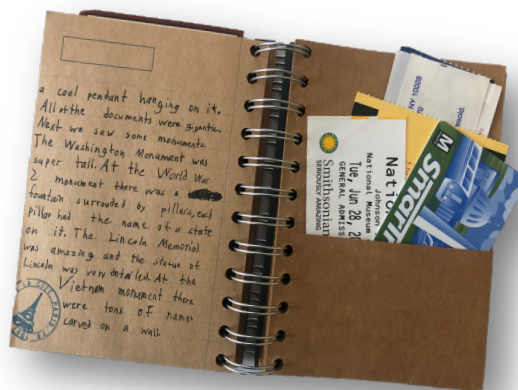 a cool pendant hanging on it.
All of the documents were gigantic.
Next we saw some monuments.
The Washington Monument was
super tall. At the World War
2 monument there was a
fountain surrouded by pillars, each
pillar had the name of a state
on it. The Lincoln Memorial
was amazing and the status of
Lincoln was very detailed. At the
Vietnam monument there
were tons of names
carved on a wall.
LA CITE PARIS
NY 10028
Nati
National Museum
Johnson
Tue, Jun 28, 2
GENERAL ADMISS
Smithsonian
SERIOUSLY AMAZING
M
SmarT